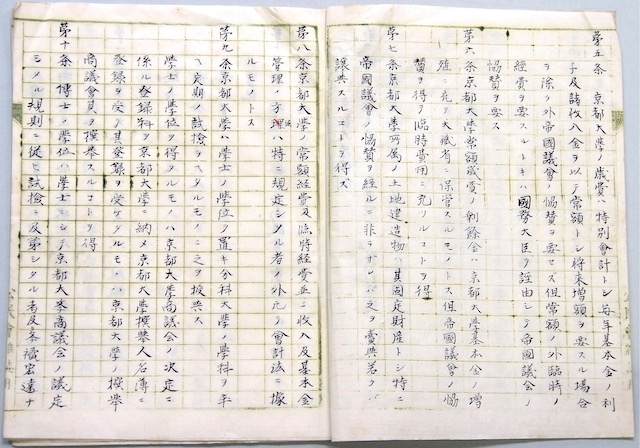 第五条 京都大學ノ歳費ハ特別會計トシ毎年基本金ノ利
子及諸收入金ヲ以テ常額トシ将来増額ヲ要スル場合
ヲ除ク外帝國議會ノ協賛ヲ要セズ但常額ノ外臨時ノ
経費ヲ要スルトキハ國務大臣ヲ経由シテ帝國議會ノ
協賛ヲ要ス
第六条京都大學常額歳費ノ剰餘金ハ京都大學基本金増
殖ニ充テ大蔵省ニ保管スルモノトス但帝國議會ノ協
賛ヲ得テ臨時費用ニ充ツルコトヲ得
第七条京都大學所属ノ土地建造物ハ其固定財産トシ特ニ
帝國議會ノ協賛ヲ経ルニ非ラザレバ之ヲ賣與若クハ
譲與スルコトヲ得ズ
第八条京都大學ノ常額経費及臨時経費並ニ收入及基本金
管理ノ方法ハ特ニ規定シタル者ノ外凡テ會計法ニ據
ルモノトス
第九条京都大學ハ學士ノ學位ヲ置キ分科大學ノ學科ヲ卒
ヘ定期ノ試験ヲヘタルモノニ之ヲ授與ス
學士ノ學位ヲ得タルモノハ京都大學商議会ノ決定ニ
係ル登録料ヲ京都大學ニ納メ京都大學撰擧人名簿ニ
登録ヲ受ク其登録ヲ受ケタルモノハ京都大學ノ撰擧
商議會員ヲ撰擧スルコトヲ得
第十条 博士ノ學位ハ學士ニシテ京都大学商議会ノ議定
シタル規則ニ従ヒ試検ニ及第シタル者及学識宏遠ナ